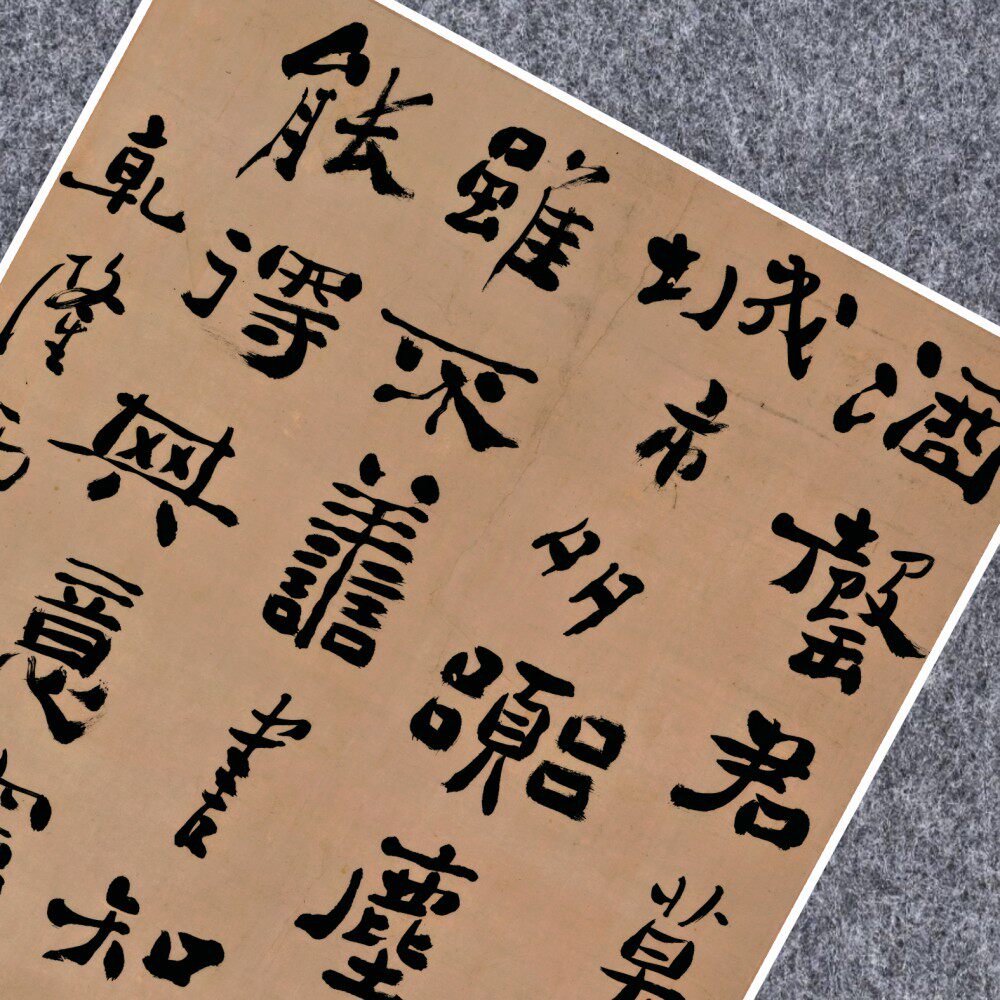 酒罄君莫
城市多囂塵
雖不善書知
能得其意
乾隆